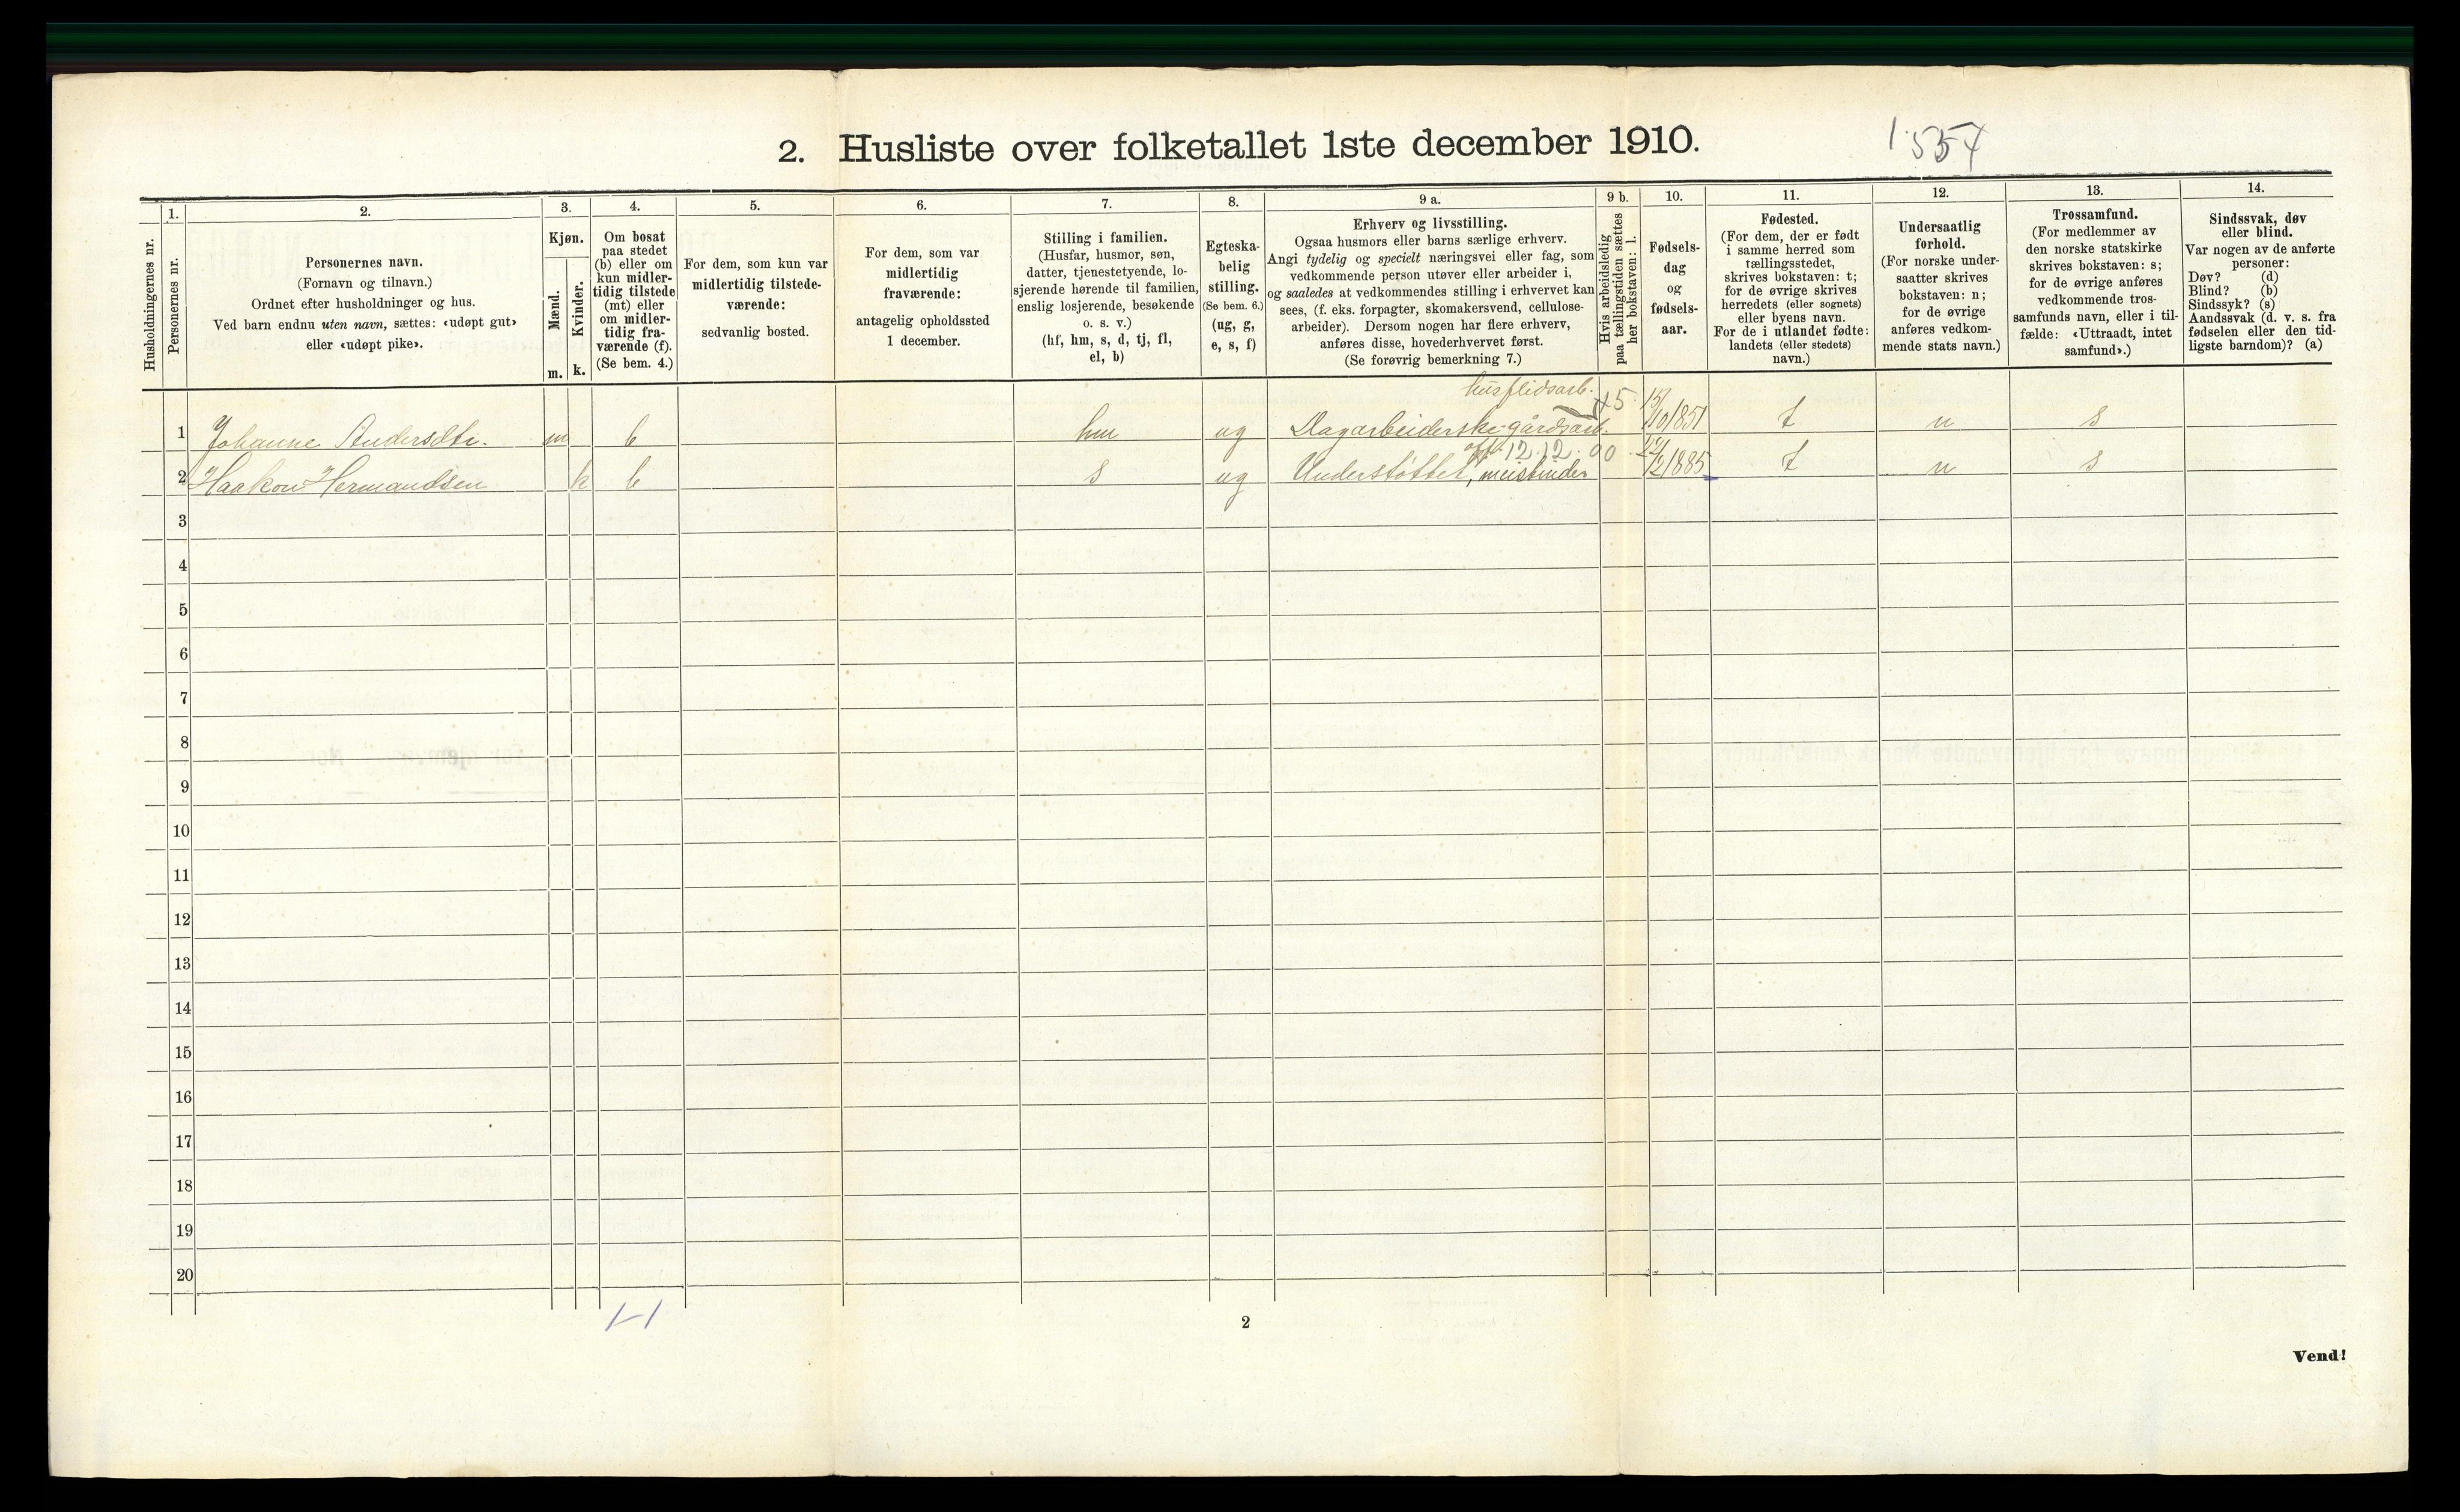 2. Husliste over folketallet 1ste december 1910.
1.
2.
3.
4.
5.
6.
7.
8.
9 a.
9 b.
10.
11.
12.
13.
14.
Husholdningernes nr.
Personernes nr.
Personernes navn.
(Fornavn og tilnavn.)
Ordnet efter husholdninger og hus.
Ved barn endnu uten navn, sættes: «udøpt gut»
eller «udøpt pike».
Kjøn.
Mænd.
Kvinder.
m.
k.
Om bosat
paa stedet
(b) eller om
kun midler-
tidig tilstede
(mt) eller
om midler-
tidig fra-
værende (f).
(Se bem. 4.)
For dem, som kun var
midlertidig tilstede-
værende:
sedvanlig bosted.
For dem, som var
midlertidig
fraværende:
antagelig opholdssted
1 december.
Stilling i familien.
(Husfar, husmor, søn,
datter, tjenestetyende, lo-
sjerende hørende til familien,
enslig losjerende, besøkende
o. s. v.)
(hf, hm, s, d, tj, fl,
el, b)
Egteska-
belig
stilling.
(Se bem. 6.)
(ug, g,
e, s, f)
Erhverv og livsstilling.
Ogsaa husmors eller barns særlige erhverv.
Angi tydelig og specielt næringsvei eller fag, som
vedkommende person utøver eller arbeider i,
og saaledes at vedkommendes stilling i erhvervet kan
sees, (f. eks. forpagter, skomakersvend, cellulose-
arbeider). Dersom nogen har flere erhverv,
anføres disse, hovederhvervet først.
(Se forøvrig bemerkning 7.)
Hvis arbeidsledig
paa tællingstiden sættes
her bokstaven: l.
Fødsels-
dag
og
fødsels-
aar.
Fødested.
(For dem, der er født
i samme herred som
tællingsstedet,
skrives bokstaven: t;
for de øvrige skrives
herredets (eller sognets)
eller byens navn.
For de i utlandet fødte:
landets (eller stedets)
navn.)
Undersaatlig
forhold.
(For norske under-
saatter skrives
bokstaven: n;
for de øvrige
anføres vedkom-
mende stats navn.)
Trossamfund.
(For medlemmer av
den norske statskirke
skrives bokstaven: s;
for de øvrige anføres
vedkommende tros-
samfunds navn, eller i til-
fælde: «Uttraadt, intet
samfund».)
Sindssvak, døv
eller blind.
Var nogen av de anførte
personer:
Døv? (d)
Blind? (b)
Sindssyk? (s)
Aandssvak (d. v. s. fra
fødselen eller den tid-
ligste barndom)? (a)
husflidsarb.
1 Johanne Andersdtr. m b hm ug Dagarbeiderske gårdsarb. 15/10 1851 t n s
12.12.00
2 Haakon Hermandsen k b s ug Understøttet, 1885 t n s
3
4
5
6
7
8
9
10
11
12
13
14
15
16
17
18
19
20
1-1
2
Vend!